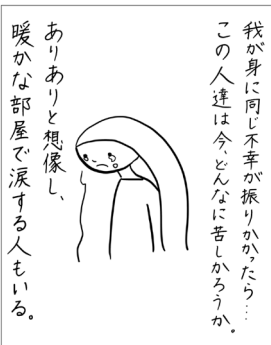 我が身に同じ不幸が振りかかったら…
この人達は今、どんなに苦しかろうか。
ありありと想像し、
暖かな部屋で涙する人もいる。